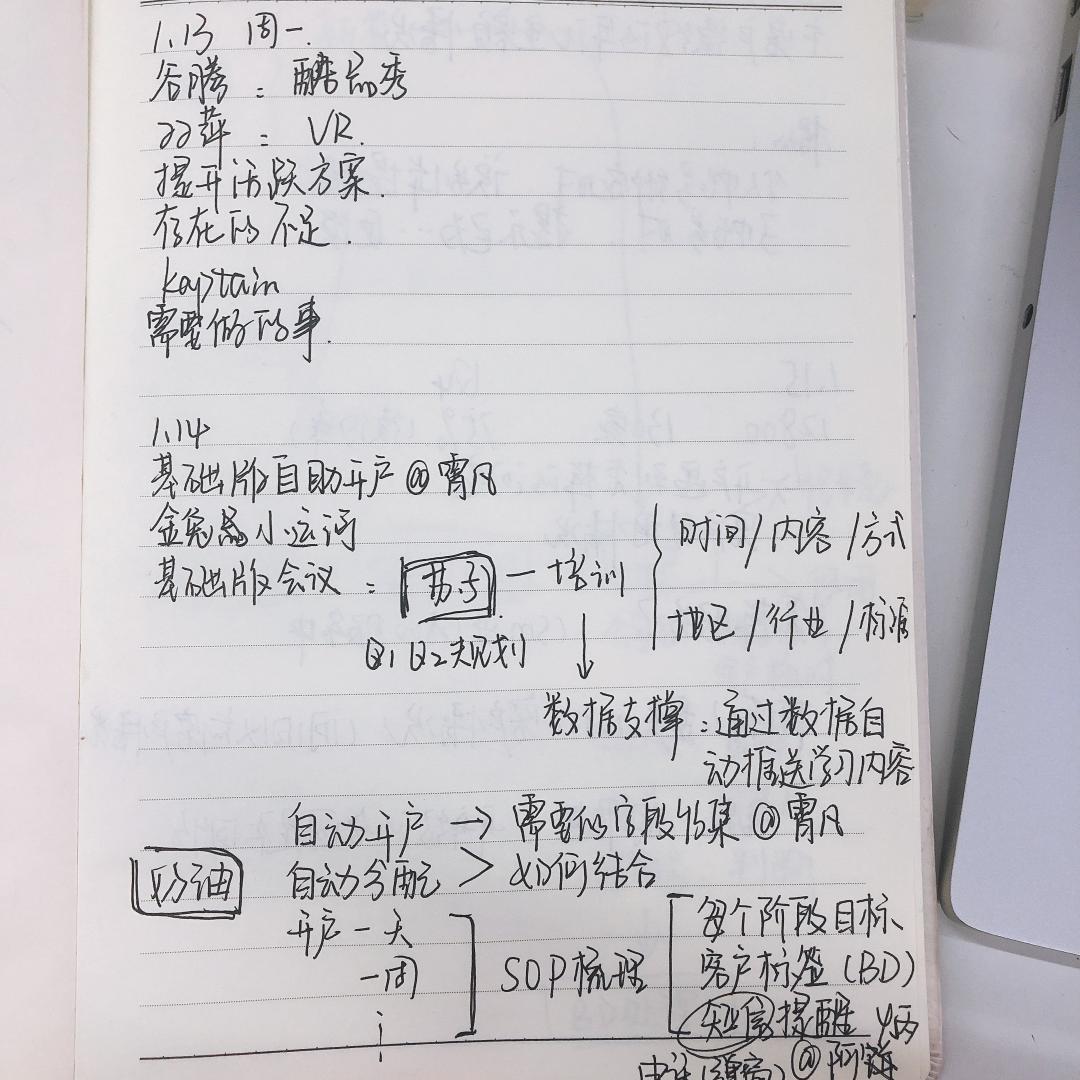 1.13 周一.
谷腾: 酷品秀
双萍: VR.
提升活跃方案.
存在的不足.
kaptain
需要做的事.
1.14
基础版自助开户 @霄凡
金兔 小运河
基础版会议:
苏子 — 培训
时间/内容/方式
地区/行业/标准
Q1 Q2规划
数据支撑:通过数据自
动推送学习内容
自动开户 → 需要的字段收集 @霄凡
自动分配 > 如何结合
奶油
开户一天
一周
SOP梳理
每个阶段目标
客户标签(BD)
短信提醒
@阿